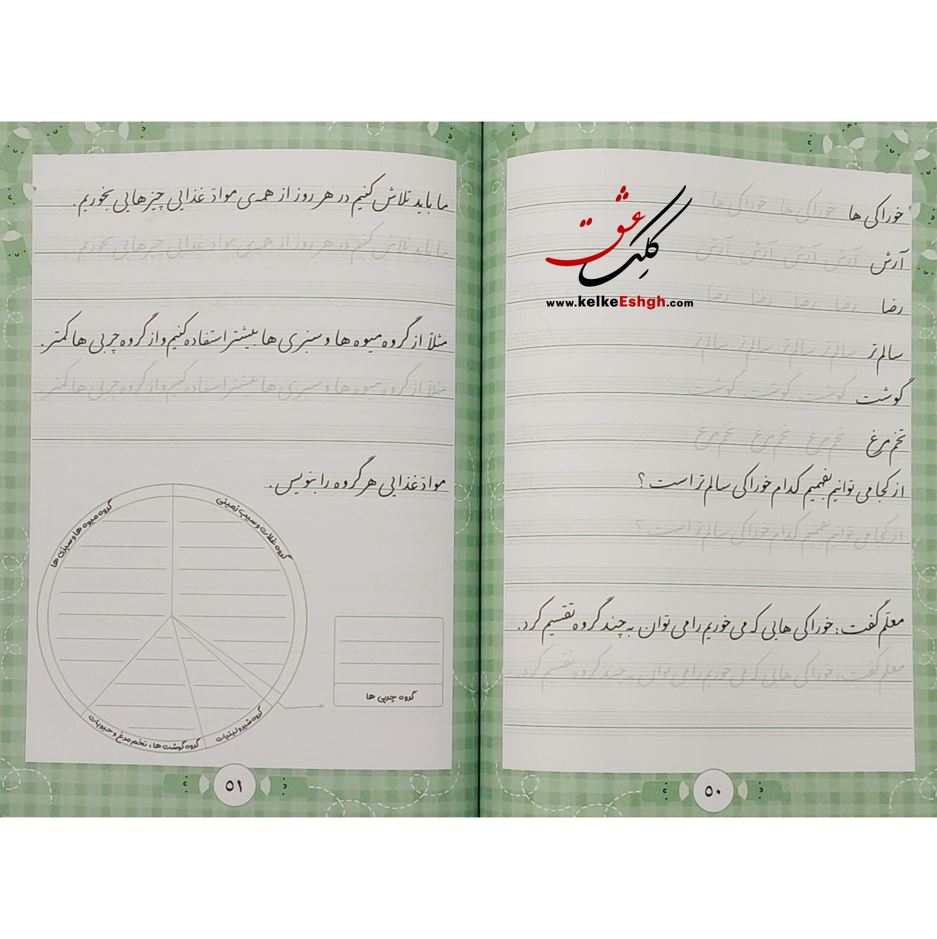 خوراکی ها خوراکی ها خوراکی ها
آرش آرش آرش آرش آرش
رضا رضا رضا رضا رضا
سالم تر سالم تر سالم تر سالم تر
گوشت گوشت گوشت گوشت
تخم مرغ تخم مرغ تخم مرغ تخم مرغ
از کجا می توانیم بفهمیم کدام خوراکی سالم تر است ؟
از کجا می توانیم بفهمیم کدام خوراکی سالم تر است ؟
معلّم گفت : خوراکی هایی که می خوریم را می توان به چند گروه تقسیم کرد.
معلّم گفت : خوراکی هایی که می خوریم را می توان به چند گروه تقسیم کرد.
۵۰
کلک عشق
www.kelkeEshgh.com
ما باید تلاش کنیم در هر روز از همه‌ی موادّ غذایی چیزهایی بخوریم.
ما باید تلاش کنیم در هر روز از همه‌ی موادّ غذایی چیزهایی بخوریم
مثلاً از گروه میوه ها و سبزی ها بیشتر استفاده کنیم و از گروه چربی ها کمتر.
مثلاً از گروه میوه ها و سبزی ها بیشتر استفاده کنیم و از گروه چربی ها کمتر
موادّ غذایی هر گروه را بنویس.
گروه غلات و سیب زمینی
گروه میوه ها و سبزی ها
گروه چربی ها
گروه شیر و لبنیات
گروه گوشت ها ، تخم مرغ و حبوبات
۵۱